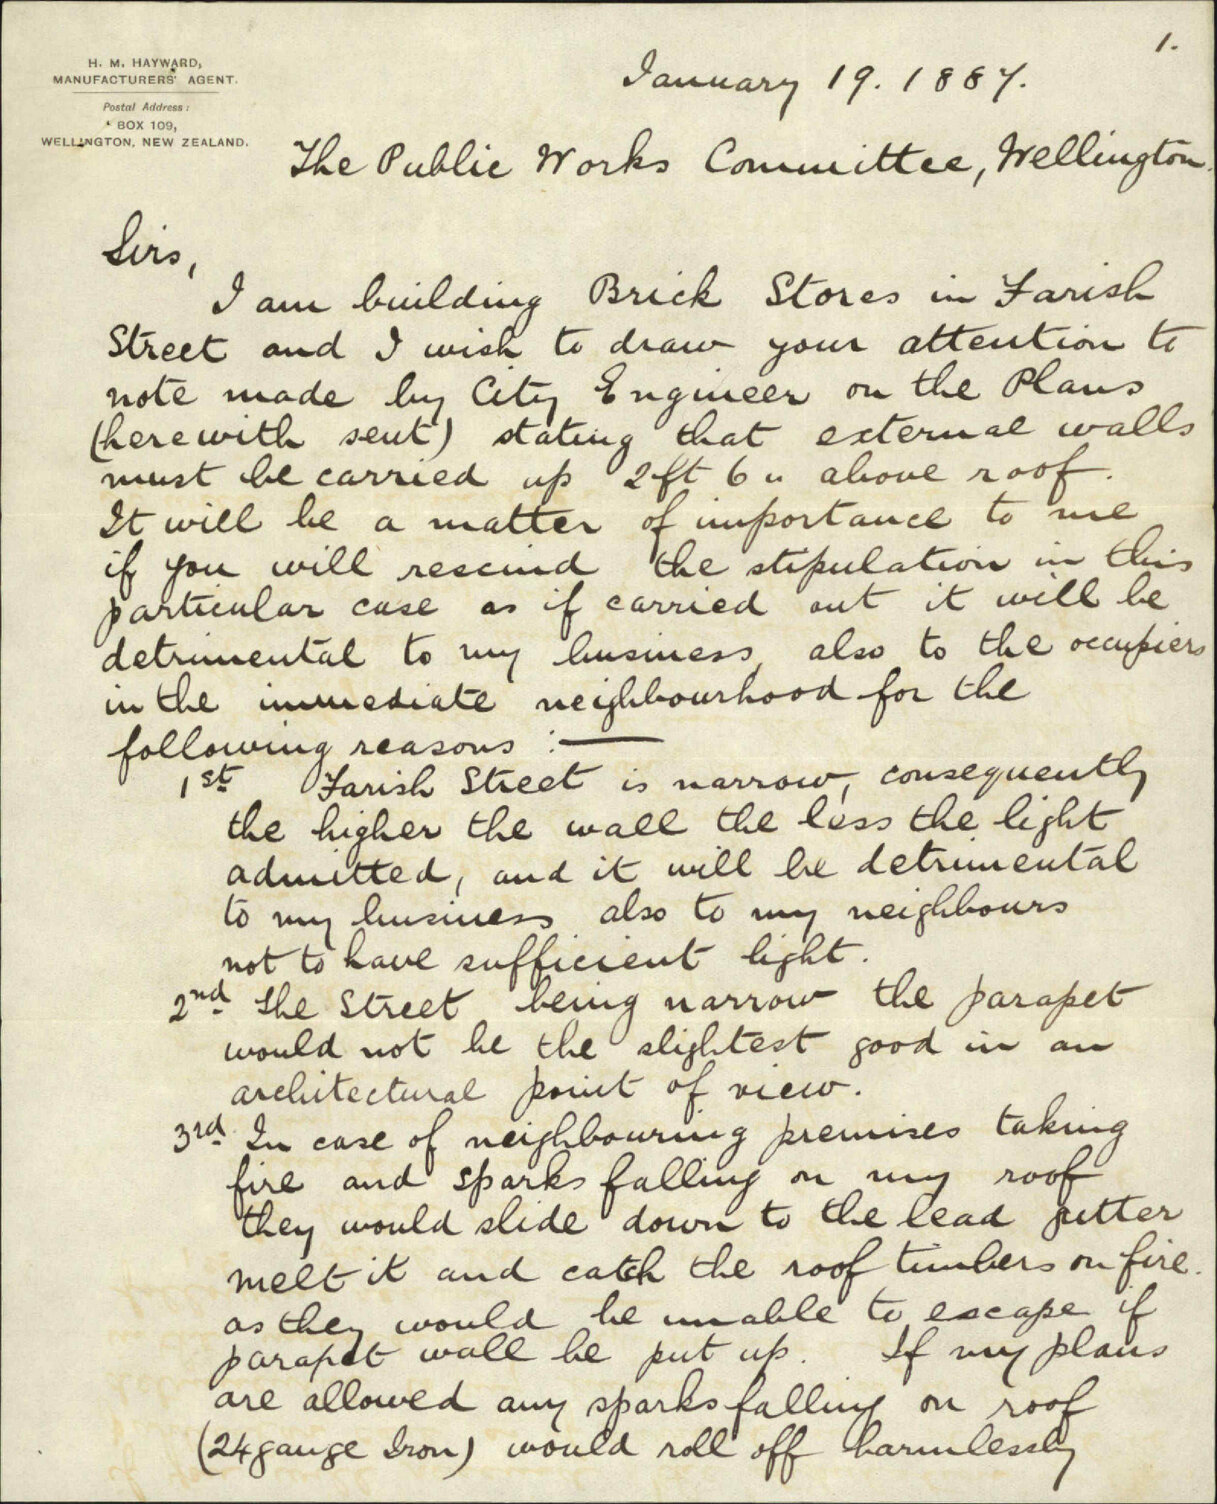 1.
H. M. HAYWARD,
MANUFACTURERS' AGENT.
Postal Address:
BOX 109,
WELLINGTON, NEW ZEALAND.
January 19. 1887.
The Public Works Committee, Wellington.
Sirs,
I am building Brick Stores in Farish
Street and I wish to draw your attention to
note made by City Engineer on the Plans
(herewith sent) stating that external walls
must be carried up 2ft 6" above roof.
It will be a matter of importance to me
if you will rescind the stipulation in this
particular case as if carried out it will be
detrimental to my business, also to the occupiers
in the immediate neighbourhood for the
following reasons :—
1st Farish Street is narrow, consequently
the higher the wall the less the light
admitted, and it will be detrimental
to my business also to my neighbours
not to have sufficient light.
2nd The Street being narrow the parapet
would not be the slightest good in an
architectural point of view.
3rd In case of neighbouring premises taking
fire and sparks falling on my roof
they would slide down to the lead gutter
melt it and catch the roof timbers on fire.
as they would be unable to escape if
parapet wall be put up. If my plans
are allowed any sparks falling on roof
(24 gauge Iron) would roll off harmlessly